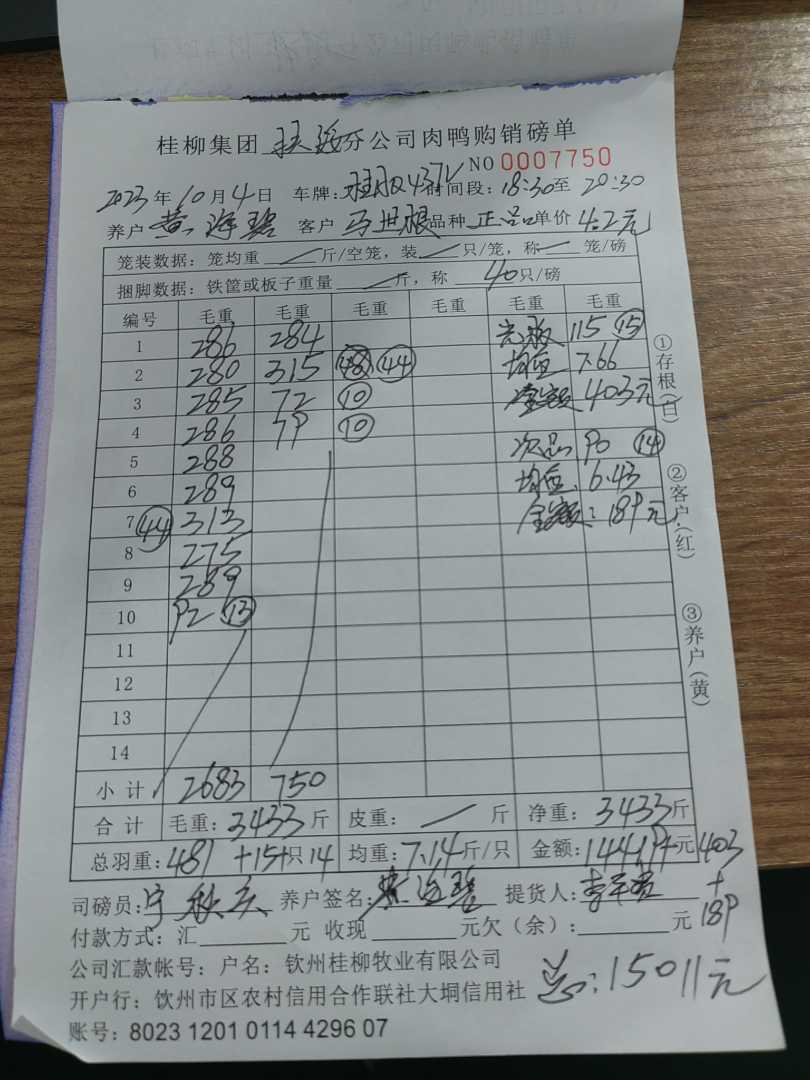 桂柳集团 分公司肉鸭购销磅单
NO 0007750
2023年10月4日 车牌: 时间段:18:30至20:30
养户 黄海碧 客户 马世根 品种 正品 单价 4.2元
笼装数据:笼均重 — 斤/空笼,装 — 只/笼,称 — 笼/磅
捆脚数据:铁筐或板子重量 — 斤,称 40 只/磅
编号 毛重 毛重 毛重 毛重 毛重 毛重
1 286 284 光板 115 (15)
2 280 315 (48) (44) 均重 7.66
3 285 72 (10) 金额 403元
4 286 79 (10) 次品 90 (14)
5 288 均重 6.43
6 289 金额: 189元
7 (44) 313
8 275
9 289
10 92 (13)
11
12
13
14
小计 2683 750
合计 毛重:3433斤 皮重: — 斤 净重:3433斤
总羽重:481 +15+只14 均重:7.14斤/只 金额:14419+元403
+
189
司磅员: 养户签名:黄海碧 提货人:
付款方式:汇 元 收现 元欠(余): 元
总:15011元
公司汇款帐号:户名:钦州桂柳牧业有限公司
开户行:钦州市区农村信用合作联社大垌信用社
账号:8023 1201 0114 4296 07
①存根(白)
②客户(红)
③养户(黄)